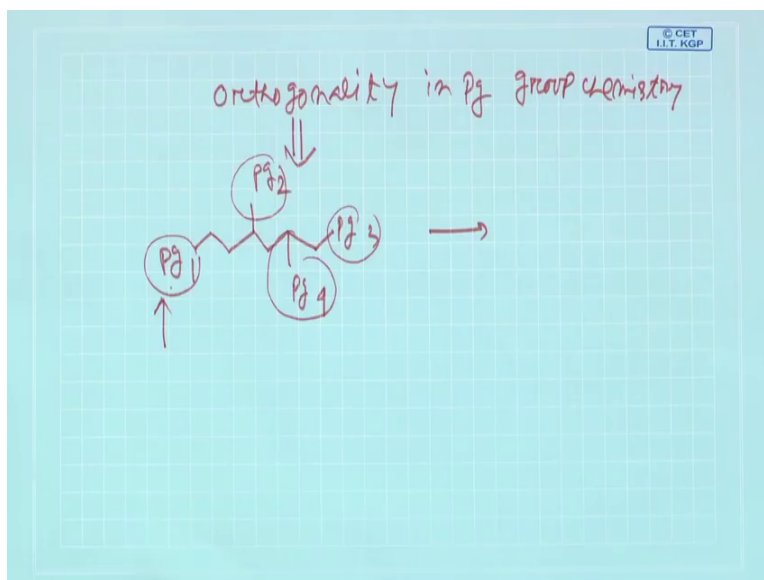 © CET
I.I.T. KGP
Orthogonality in Pg group chemistry
Pg2
Pg1
Pg3
Pg4